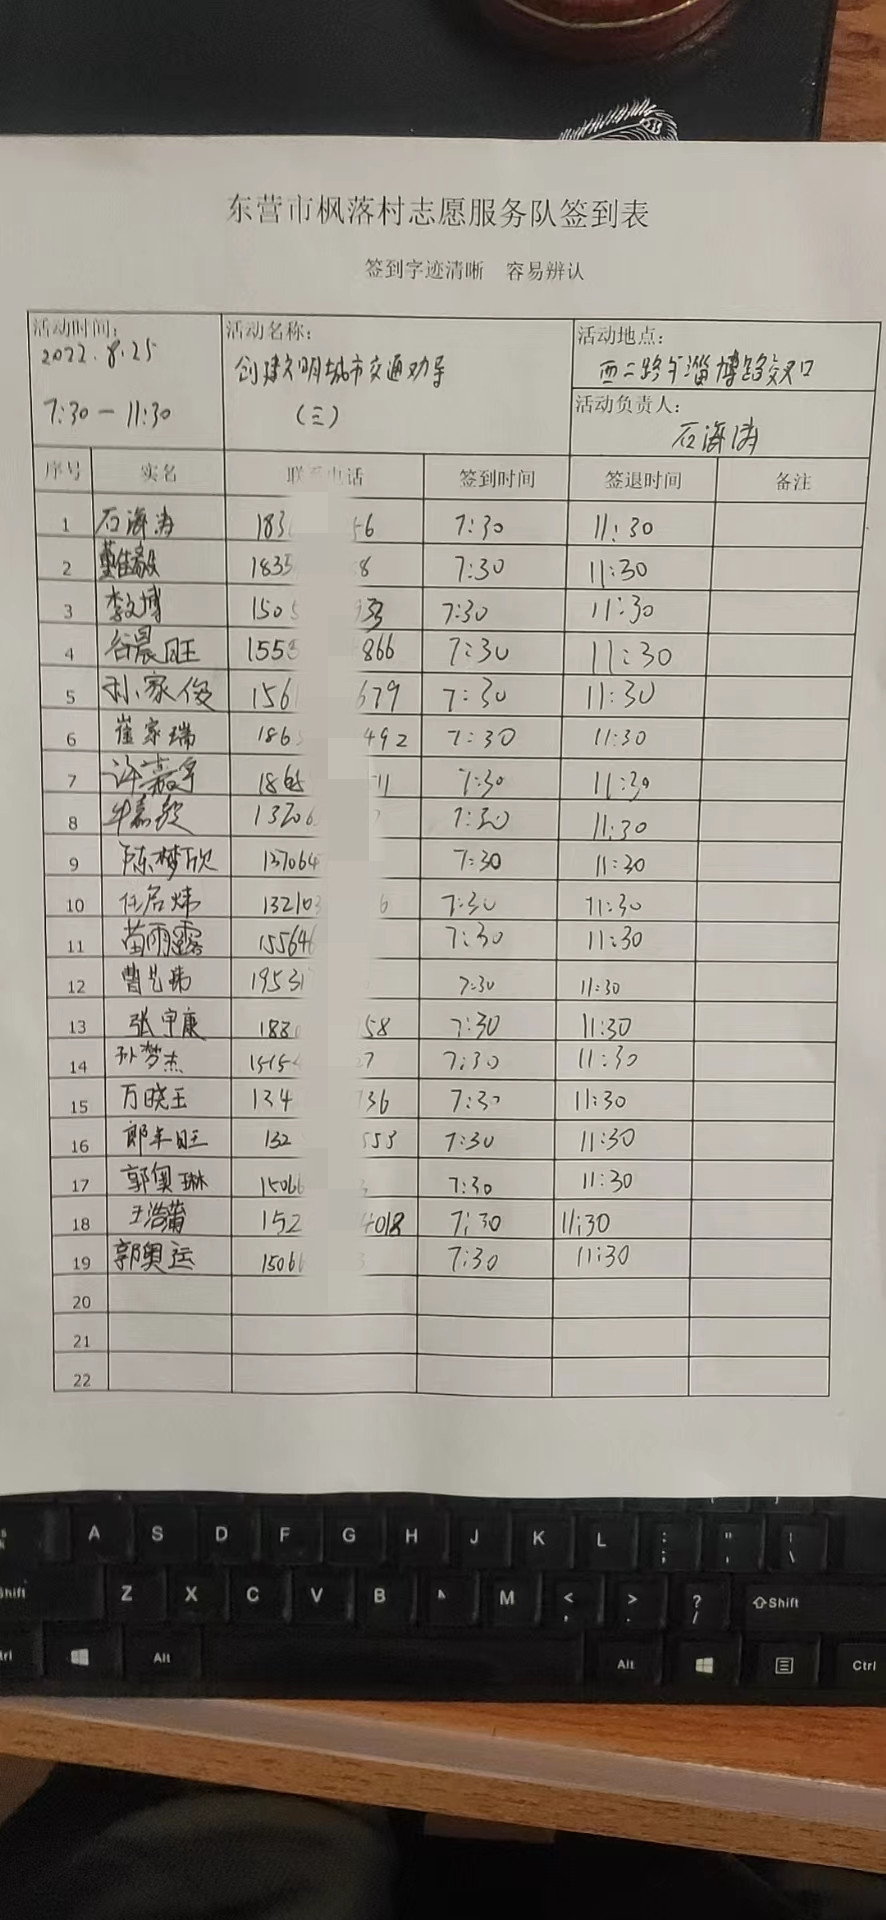 东营市枫落村志愿服务队签到表
签到字迹清晰 容易辨认
活动时间: 活动名称: 活动地点:
2022.8.25 创建文明城市交通劝导 西二路与淄博路交叉口
7:30—11:30 (三) 活动负责人:
石海涛
序号 实名 联系电话 签到时间 签退时间 备注
1 石海涛 183 56 7:30 11:30
2 1835 8 7:30 11:30
3 李文博 1505 7:30 11:30
4 谷晨旺 1553 866 7:30 11:30
5 孙家俊 156 679 7:30 11:30
6 崔家瑞 186 492 7:30 11:30
7 许嘉宇 186 11 7:30 11:30
8 牛嘉欽 13706 7:30 11:30
9 陈梦欣 137064 7:30 11:30
10 任居炜 13210 6 7:30 11:30
11 苗雨露 15564 7:30 11:30
12 曹艺玮 1953 7:30 11:30
13 张宇康 188 58 7:30 11:30
14 孙梦杰 1515 7 7:30 11:30
15 万晓王 134 736 7:30 11:30
16 郎丰旺 132 553 7:30 11:30
17 郭奥琳 15066 7:30 11:30
18 王浩莆 152 4018 7:30 11:30
19 郭奥运 15066 3 7:30 11:30
20
21
22
A S D F G H J K L ; : ' " \ |
Shift Z X C V B M < , > . ? / ⇧Shift
Alt Alt Ctrl